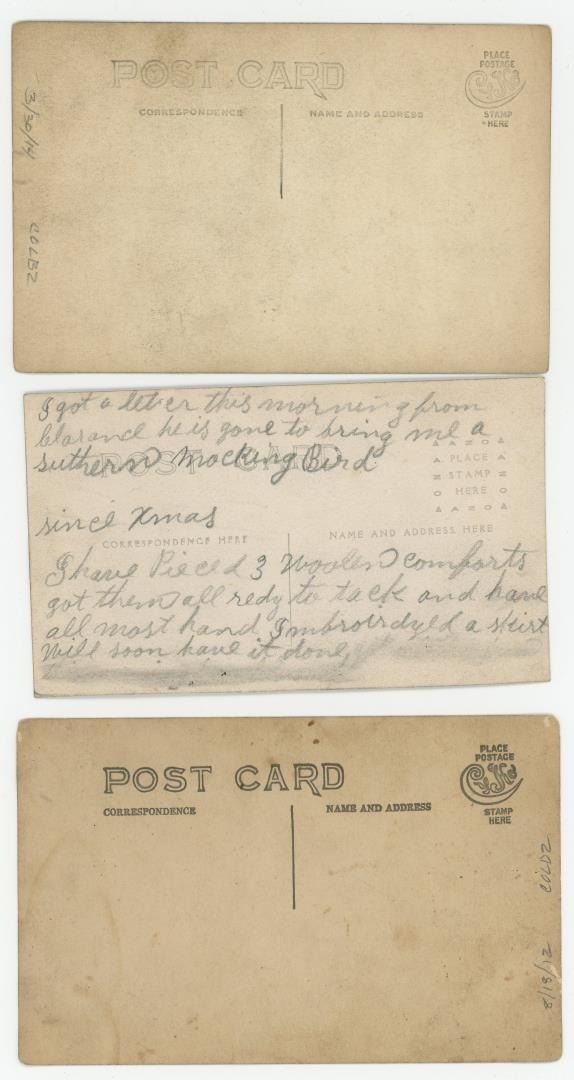 POST CARD
CORRESPONDENCE
NAME AND ADDRESS
PLACE
POSTAGE
STAMP
HERE
3/30/14
COLBZ
I got a letter this morning from
Clarance he is gone to bring me a
suthern Mocking Bird
POST CARD
AZOA
PLACE
STAMP
HERE
AZOA
since Xmas
CORRESPONDENCE HERE
NAME AND ADDRESS HERE
I have Pieced 3 Woolen comforts
got them all redy to tack and have
all most hand Imbroirdyed a skirt
Will soon have it done
POST CARD
CORRESPONDENCE
NAME AND ADDRESS
PLACE
POSTAGE
STAMP
HERE
COLDZ
8/18/12